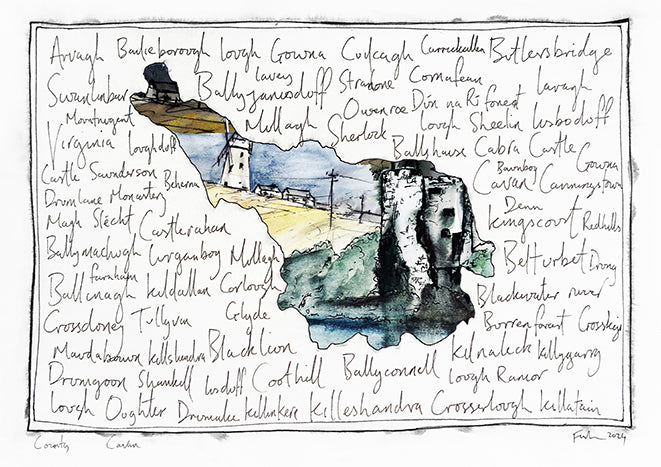 Arvagh Bailieborough Lough Gowna Cuilcagh Butlersbridge
Swanlinbar Bally Jamesduff lavey Stradone Cornafean lavagh
Mountnugent Mullagh Owenroe Dún na Rí forest
Virginia loughduff Sherlock Lough Sheelin lisboduff
Castle Saunderson Ballyhaise Cabra Castle Gowna
Drumlane Monastery Cavan Bawnboy
Magh Slécht Castlerahan Denn Kingscourt Redhills
Ballymachugh Lurganboy Mullagh Belturbet Drung
Ballinagh farnham Kildallan Carlough Blackwater river
Crossdoney Tullyvin Glyde Burren forest
killeshandra Blacklion Kilnaleck killygarry
Drumgoon Shankill lisduff Coothill Ballyconnell lough Ramor
Lough Oughter killinkere Killeshandra Crosserlough killatain
County Cavan 2024